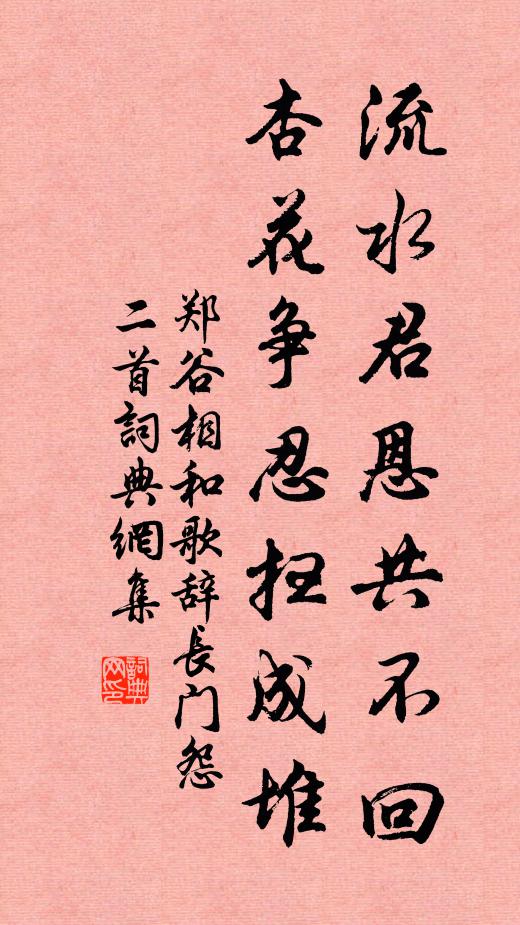 流水君恩共不回
杏花争忍扫成堆
郑谷相和歌辞长门怨
二首詞典網集
詞典
网印